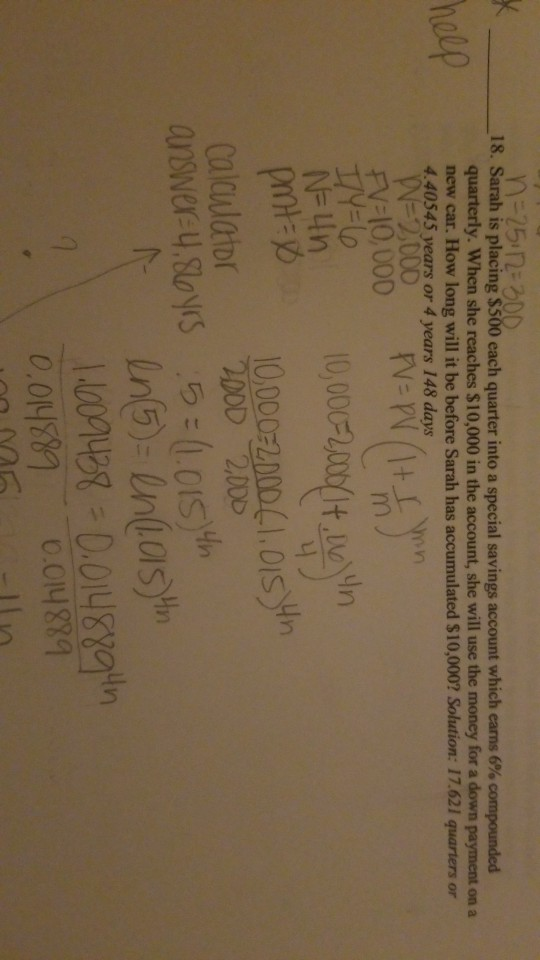 n=25·12=300
*
help
18. Sarah is placing $500 each quarter into a special savings account which earns 6% compounded
quarterly. When she reaches $10,000 in the account, she will use the money for a down payment on a
new car. How long will it be before Sarah has accumulated $10,000? Solution: 17.621 quarters or
4.40545 years or 4 years 148 days
PV=2,000
FV=10,000
I/Y=6
N=4n
pmt=0
calculator
answer=4.86yrs
?
FV=PV(1+I/m)^mn
10,000=2,000(1+.06/4)^4n
10,000=2000(1.015)^4n
2000 2,000
5=(1.015)^4n
ln(5)=ln(1.015)^4n
1.6091438=0.014889^4n
0.014889 0.014889